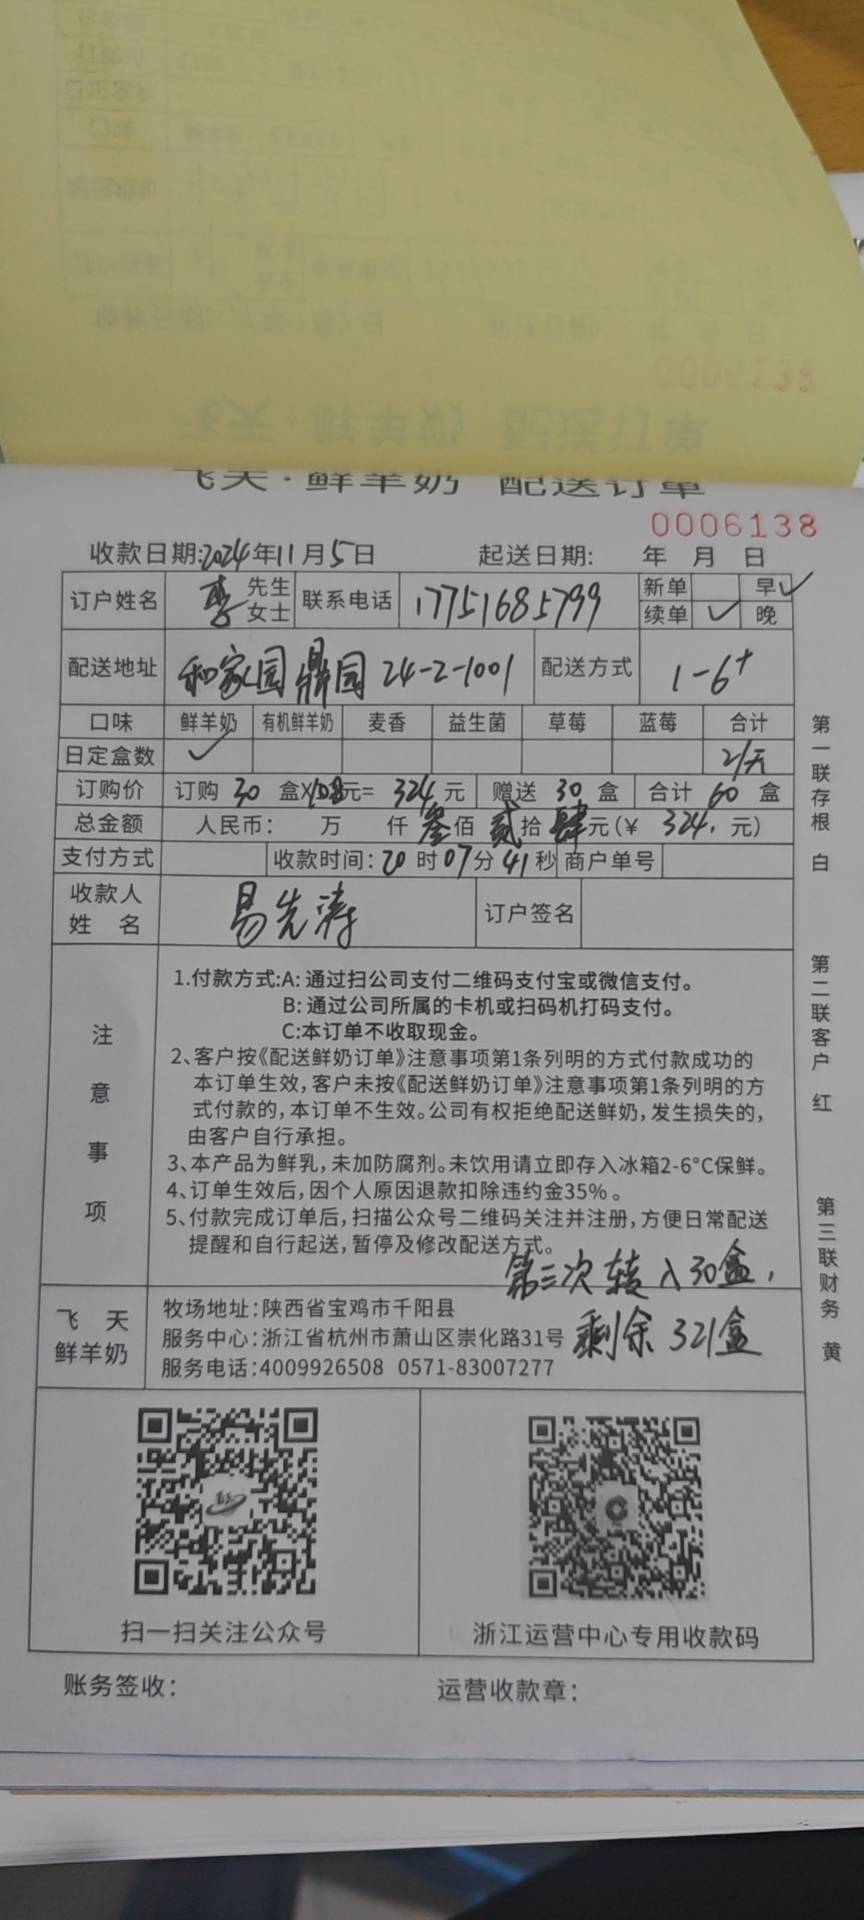 飞天·鲜羊奶 配送订单
0006138
收款日期:2024年11月5日 起送日期: 年 月 日
订户姓名 李 先生 女士 联系电话 17751685799 新单 早✓
续单 ✓ 晚
配送地址 和家园鼎园 24-2-1001 配送方式 1-6+
口味 鲜羊奶 有机鲜羊奶 麦香 益生菌 草莓 蓝莓 合计
日定盒数 ✓ 2/天
订购价 订购 30 盒X10.8元= 324 元 赠送 30 盒 合计 60 盒
总金额 人民币: 万 仟 叁佰 贰拾 肆元(¥ 324. 元)
支付方式 收款时间:20时07分41秒 商户单号
收款人姓名 易先涛 订户签名
注意事项
1.付款方式:A:通过扫公司支付二维码支付宝或微信支付。
B:通过公司所属的卡机或扫码机打码支付。
C:本订单不收取现金。
2、客户按《配送鲜奶订单》注意事项第1条列明的方式付款成功的
本订单生效,客户未按《配送鲜奶订单》注意事项第1条列明的方
式付款的,本订单不生效。公司有权拒绝配送鲜奶,发生损失的,
由客户自行承担。
3、本产品为鲜乳,未加防腐剂。未饮用请立即存入冰箱2-6°C保鲜。
4、订单生效后,因个人原因退款扣除违约金35%。
5、付款完成订单后,扫描公众号二维码关注并注册,方便日常配送
提醒和自行起送,暂停及修改配送方式。
第三次转入30盒,
剩余321盒
飞天
鲜羊奶
牧场地址:陕西省宝鸡市千阳县
服务中心:浙江省杭州市萧山区崇化路31号
服务电话:4009926508 0571-83007277
扫一扫关注公众号 浙江运营中心专用收款码
账务签收: 运营收款章:
第一联存根 白
第二联客户 红
第三联财务 黄